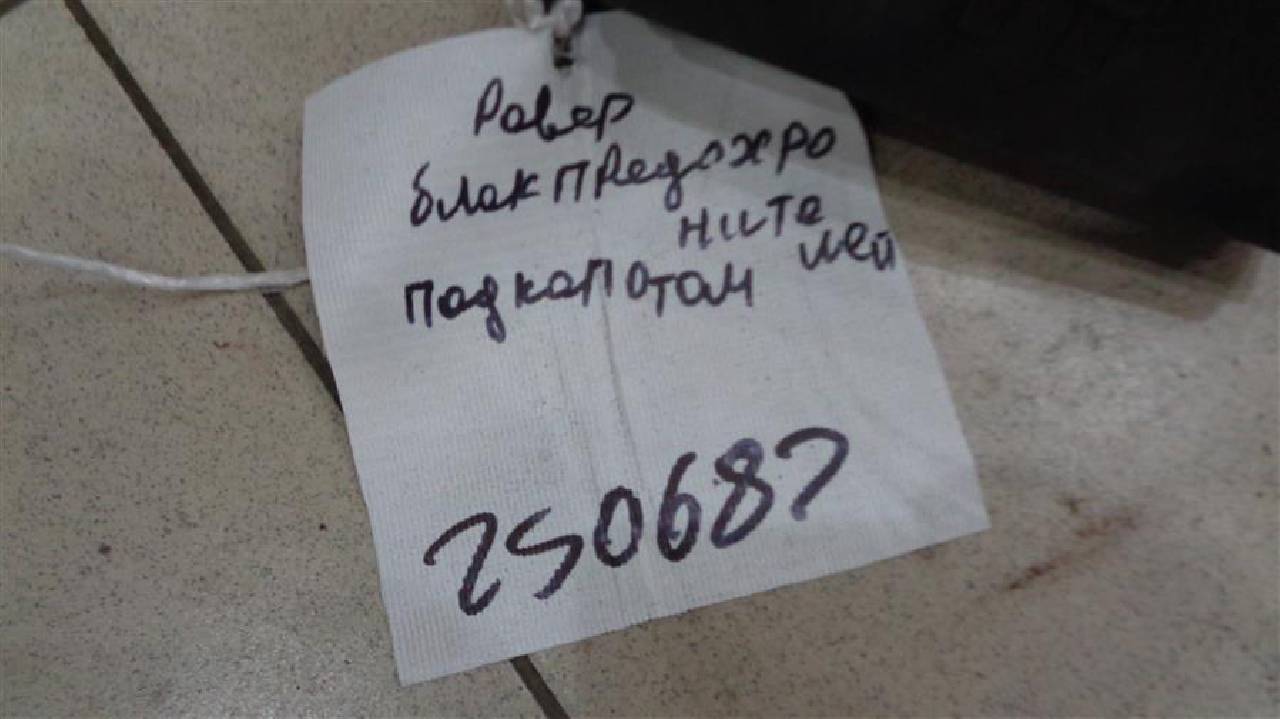 Ровер
блок предохро
ните
лей
под капотом
250687